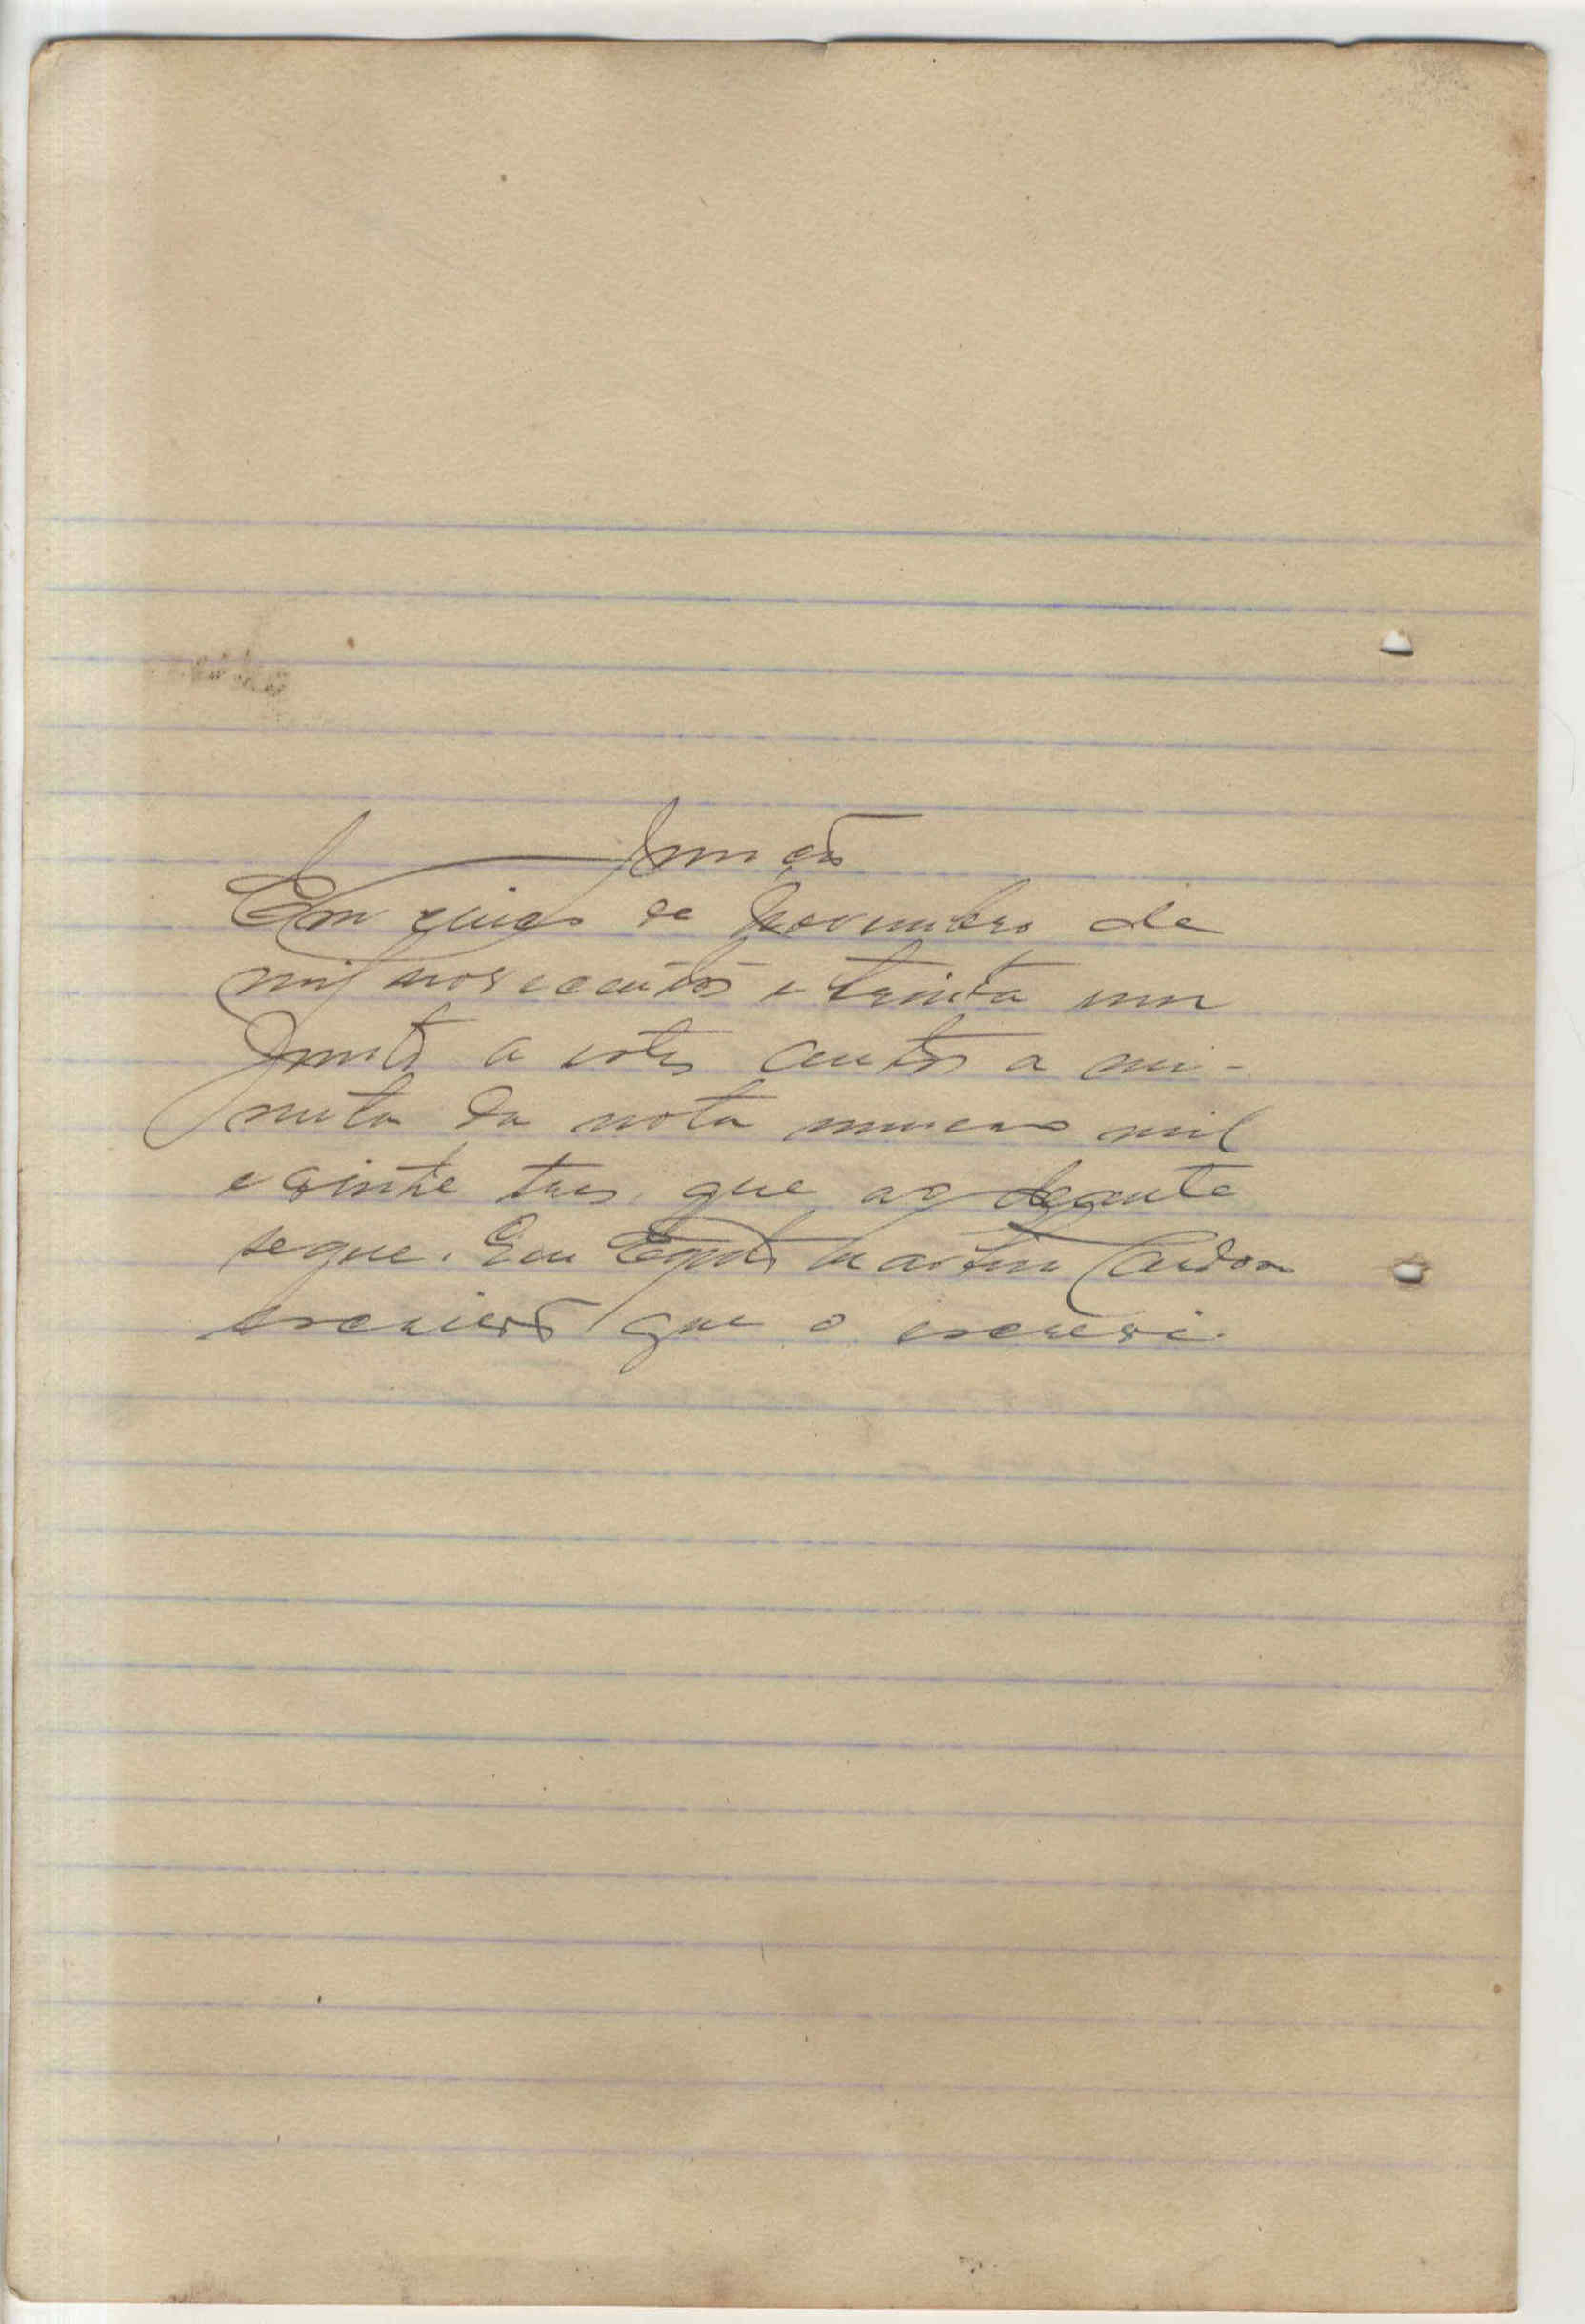 Junção
Em cinco de Novembro de
mil novecentos e trinta um
Junto a estes autos a mi-
nuta da nota numero mil
e vinte tres que ao deante
segue. Eu Martins Cardoso
escrivão que o escrevi.